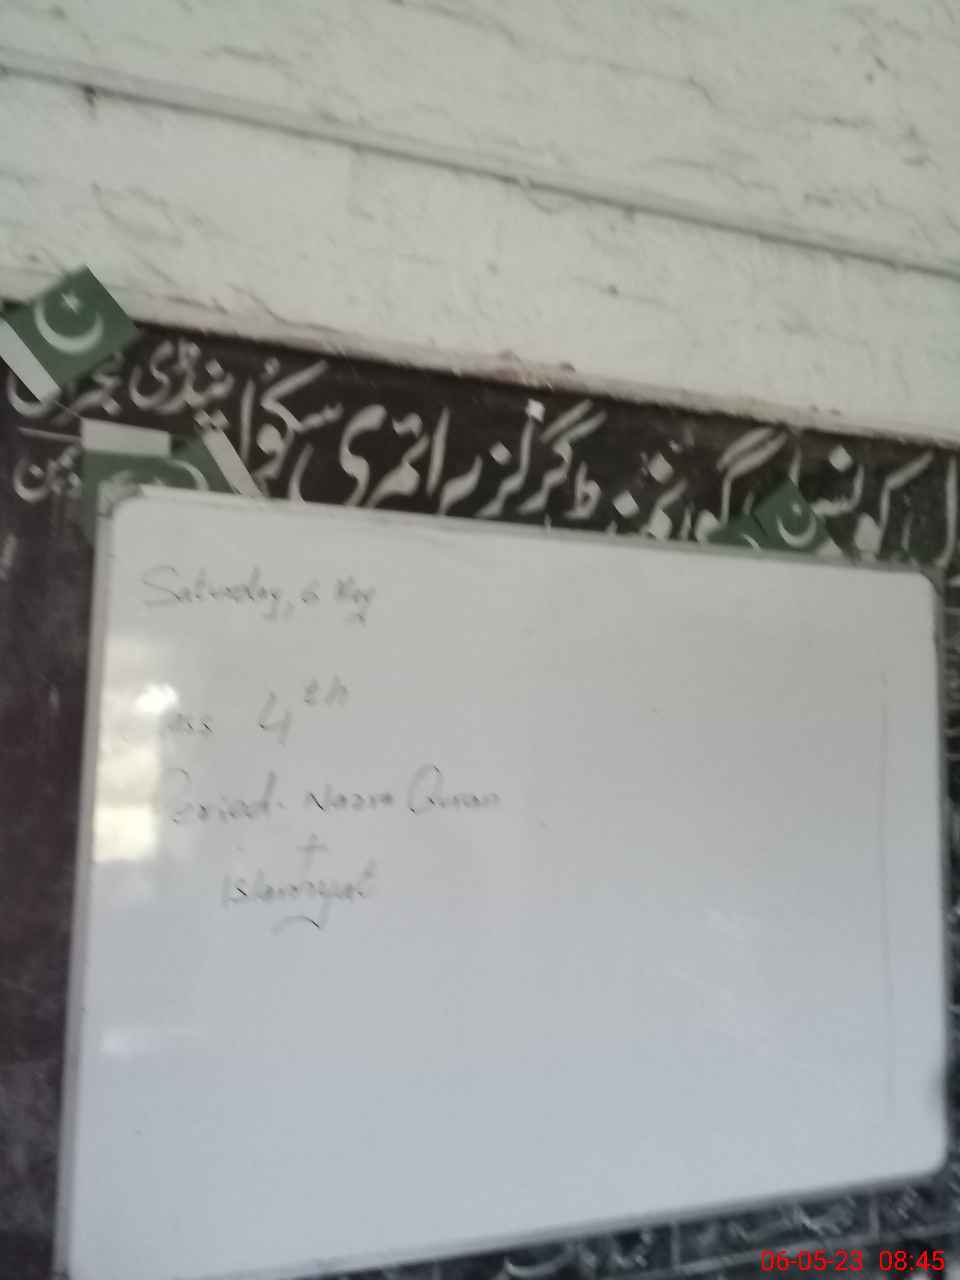 کونسل گورنمنٹ گرلز پرائمری سکول پنڈی
Saturday, 6 May
4th
Period. Nazra Quran
+
Islamiyat
06-05-23 08:45